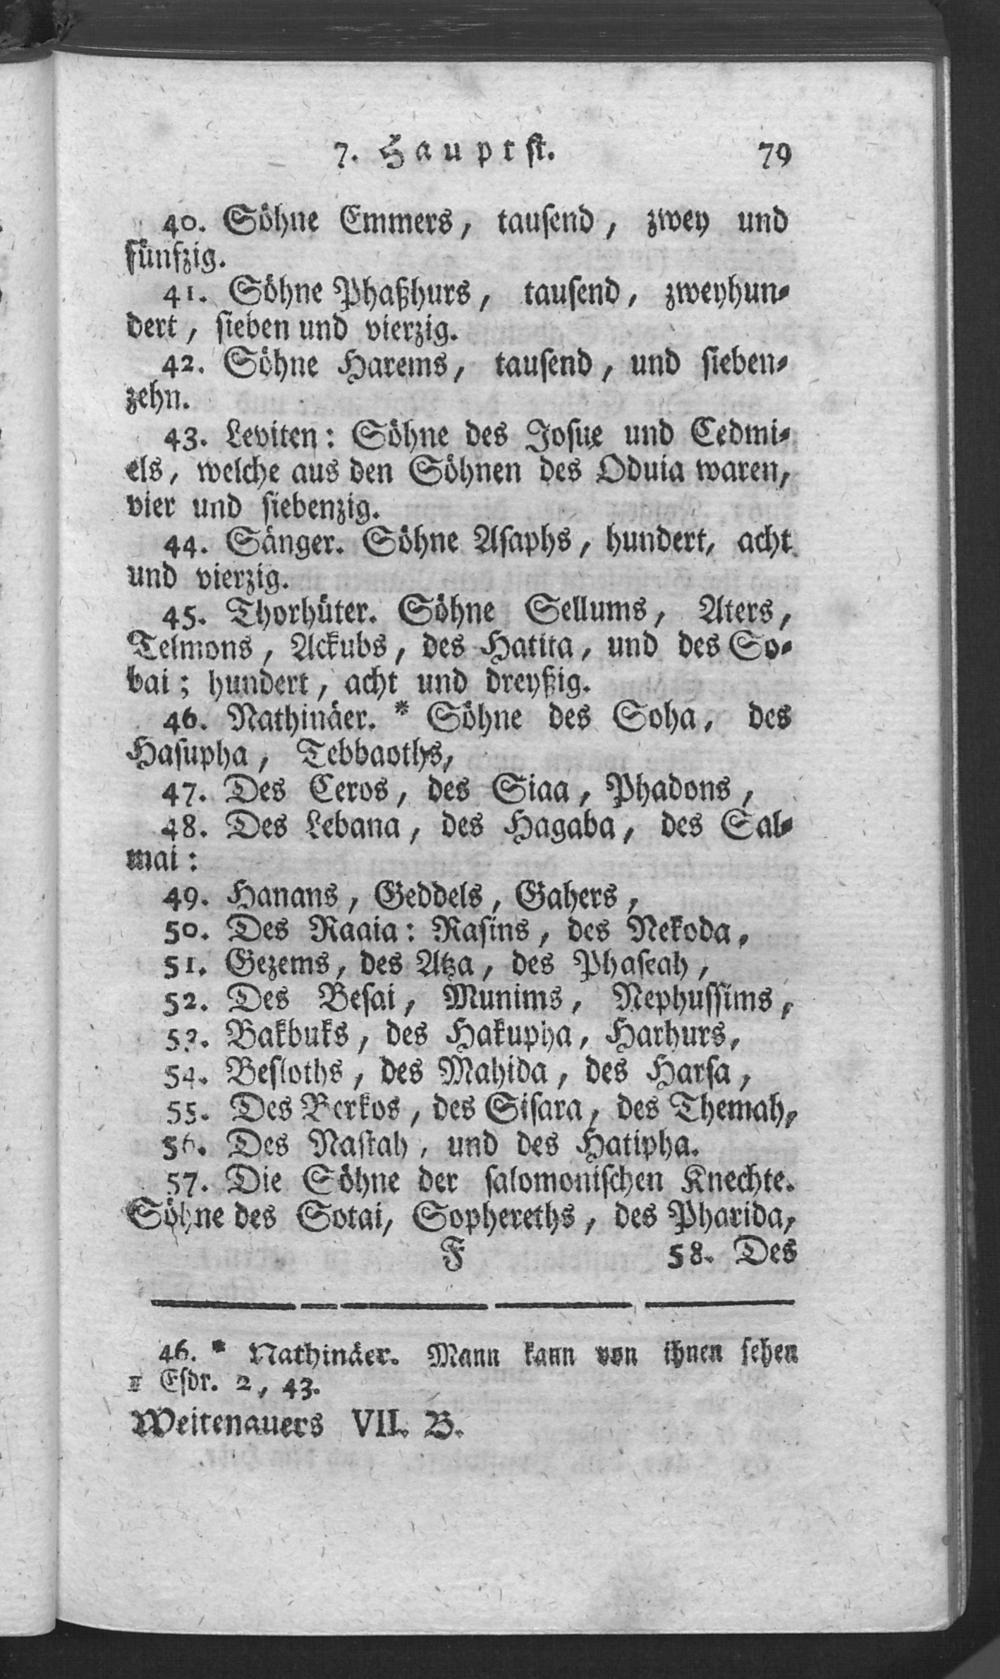 7. Hauptst. 79
40. Söhne Emmers, tausend, zwey und
fünfzig.
41. Söhne Phaßhurs, tausend, zweyhun-
dert, sieben und vierzig.
42. Söhne Harems, tausend, und sieben-
zehn.
43. Leviten: Söhne des Josue und Cedmi-
els, welche aus den Söhnen des Oduia waren,
vier und siebenzig.
44. Sänger. Söhne Asaphs, hundert, acht
und vierzig.
45. Thorhüter. Söhne Sellums, Aters,
Telmons, Ackubs, des Hatita, und des So-
bai; hundert, acht und dreyßig.
46. Nathinäer. * Söhne des Soha, des
Hasupha, Tebbaoths,
47. Des Ceros, des Siaa, Phadons,
48. Des Lebana, des Hagaba, des Sal-
mai:
49. Hanans, Geddels, Gahers,
50. Des Raaia: Rasins, des Nekoda,
51. Gezems, des Atza, des Phaseah,
52. Des Besai, Munims, Nephussims,
53. Bakbuks, des Hakupha, Harhurs,
54. Besloths, des Mahida, des Harsa,
55. Des Berkos, des Sisara, des Themah,
56. Des Nasiah, und des Hatipha.
57. Die Söhne der salomonischen Knechte.
Söhne des Sotai, Sophereths, des Pharida,
F 58. Des
46. * Nathinäer. Mann kann von ihnen sehen
I Esdr. 2, 43.
Weitenauers VII. B.